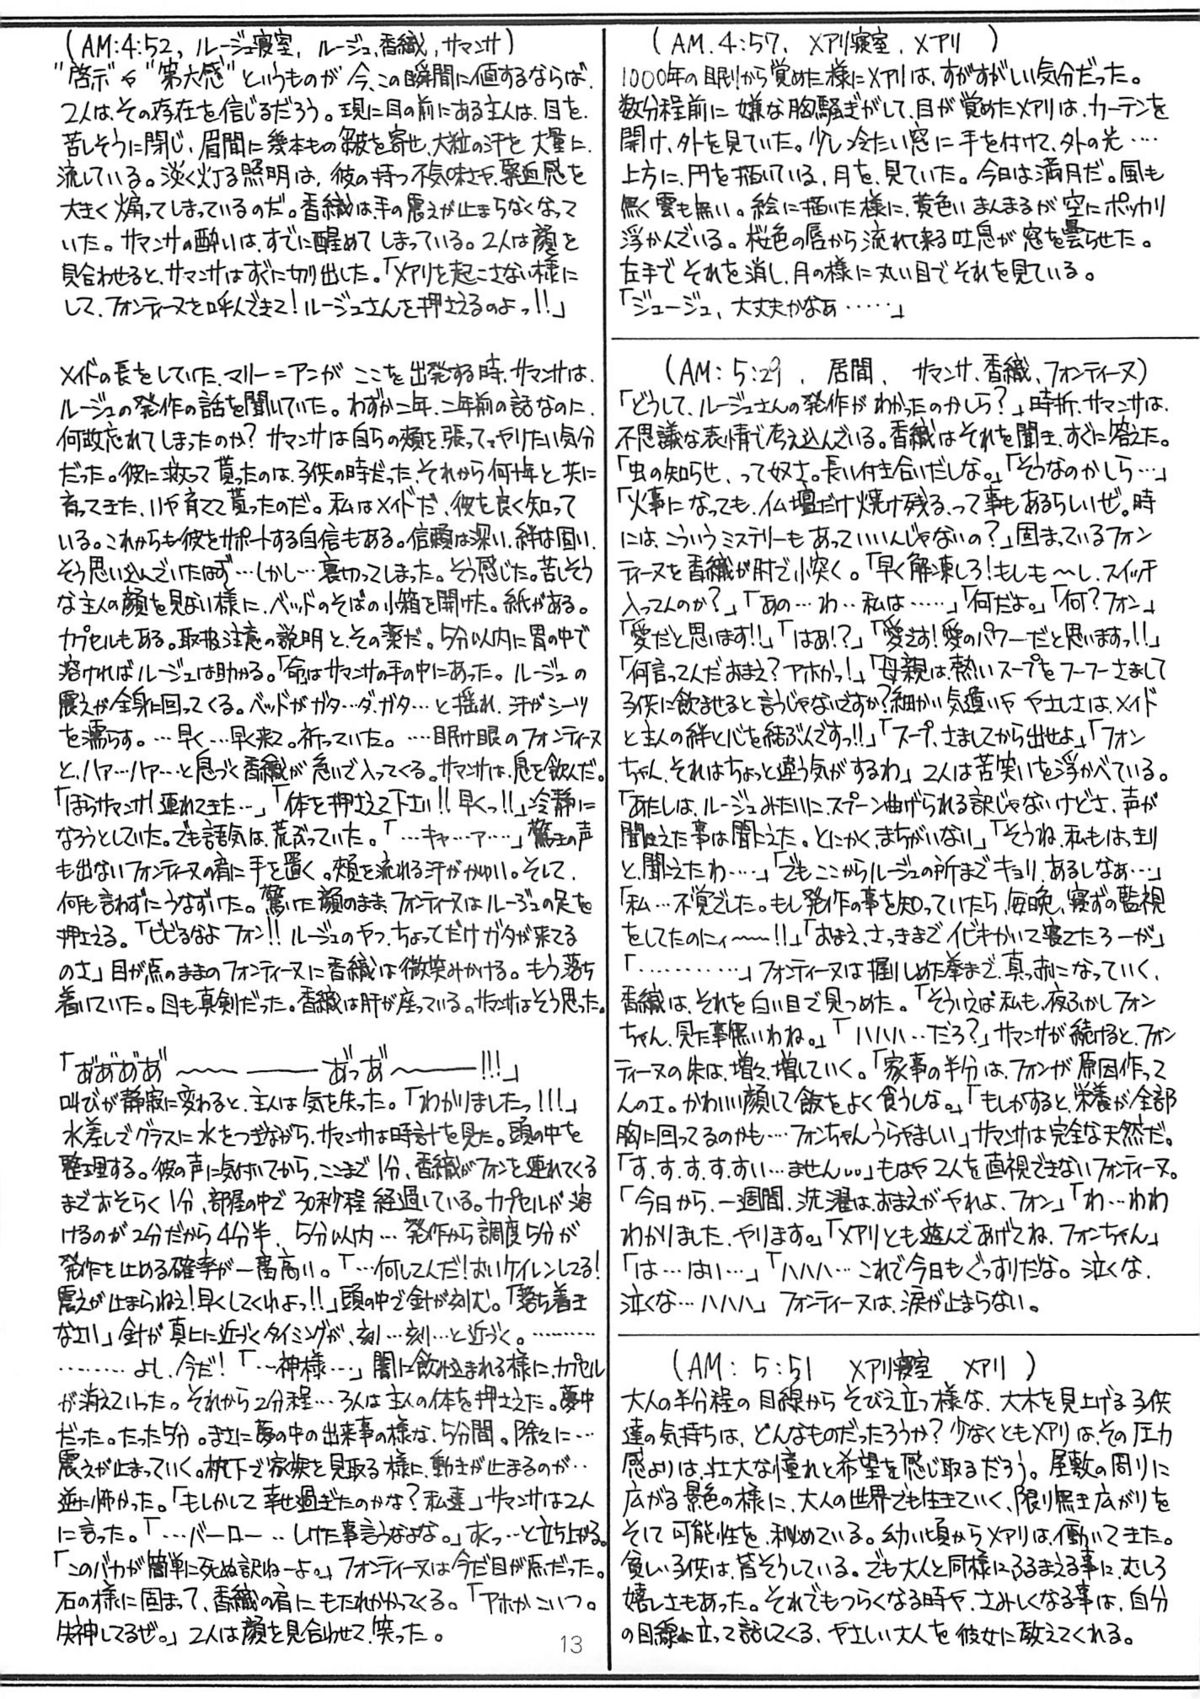 (AM:4:52, ルージュ寝室, ルージュ, 香織, サマンサ)
"啓示"や"第六感"というものが今、この瞬間に値するならば、
2人はその存在を信じるだろう。現に目の前にある主人は、目を、
苦しそうに閉じ、眉間に幾本もの皺を寄せ、大粒の汗を大量に、
流している。淡く灯る照明は、彼の持つ不気味さや、緊迫感を
大きく煽ってしまっているのだ。香織は、手の震えが止まらなくなって
いた。サマンサの酔いは、すでに醒めてしまっている。2人は顔を
見合わせると、サマンサはすぐに切り出した。「メアリを起こさない様に
して、フォンティーヌを呼んできて!ルージュさんを押さえるのよっ!!」
メイドの長をしていた、マリー=アンがここを出発する時、サマンサは、
ルージュの発作の話を聞いていた。わずか二年、二年前の話なのに、
何故忘れてしまったのか?サマンサは自らの頬を張ってやりたい気分
だった。彼に救って貰ったのは、子供の時だった、それから何十年と、共に
育ってきた、いや育てて貰ったのだ。私はメイドだ、彼を良く知って
いる。これからも彼をサポートする自信もある。信頼は深い、絆は固い、
そう思い込んでいたはず…しかし…裏切ってしまった。そう感じた。苦しそう
な主人の顔を見ない様に、ベッドのそばの小箱を開けた。紙がある。
カプセルもある。取扱注意の説明と、その薬だ。5分以内に胃の中で
溶ければルージュは助かる。「命はサマンサの手の中にあった。ルージュの
震えが全身に回ってくる。ベッドがガタ…ダ、ガタ…と揺れ、汗がシーツ
を濡らす。…早く…早く来て。祈っていた。…眠け眼のフォンティーヌ
と、ハァ…ハァ…と息づく香織が急いで入ってくる。サマンサは、息を飲んだ。
「ほらサマンサ!連れてきた…」「体を押さえて下さい!!早くっ!!」冷静に
なろうとしていた。でも語気は、荒ぶっていた。「…キャ…ァ…」驚きの声
も出ないフォンティーヌの肩に手を置く。頬を流れる汗がかゆい。そして、
何も言わずにうなずいた。驚いた顔のまま、フォンティーヌはルージュの足を
押さえる。「ビビるなよフォン!!ルージュのヤツ、ちょっとだけガタが来てる
のさ」目が点のままのフォンティーヌに香織は微笑みかける。もう落ち
着いていた。目も真剣だった。香織は肝が座っている。サマンサはそう思った。
「あ゛あ゛あ゛あ゛〜〜――――あ゛っあ゛〜―――!!!」
叫びが静寂に変わると、主人は気を失った。「わかりましたっ!!!」
水差しでグラスに水をつぎながら、サマンサは時計を見た。頭の中を
整理する。彼の声に気付いてから、ここまで1分、香織がフォンを連れてくる
までおそらく1分、部屋の中で30秒程経過している。カプセルが溶
けるのが2分だから4分半、5分以内…発作から調度5分が
発作を止める確率が一番高い。「…何してんだ!おいケイレンしてる!
震えが止まらねえ!早くしてくれよっ!!」頭の中で針が刻む。「落ち着き
なさい」針が真上に近づくタイミングが、刻…刻…と近づく。…………
…………よし、今だ!「…神様…」闇に飲み込まれる様に、カプセル
が消えていった。それから2分程…3人は主人の体を押さえた。夢中
だった。たった5分。まさに夢の中の出来事の様な、5分間。除々に…
震えが止まっていく。枕下で家族を見取る様に、動きが止まるのが…
並に怖かった。「もしかして幸せ過ぎたのかな?私達」サマンサは2人
に言った。「…バーロー…しけた事言うなよな。」すくっ…と立ち上がる。
「このバカが簡単に死ぬ訳ねーよ。」フォンティーヌは今だ目が点だった。
石の様に固まって、香織の肩にもたれかかってくる。「アホかこいつ。
失神してるぜ。」2人は顔を見合わせて、笑った。
(AM.4:57, メアリ寝室, メアリ)
1000年の眠りから覚めた様にメアリは、すがすがしい気分だった。
数分程前に嫌な胸騒ぎがして、目が覚めたメアリは、カーテンを
開け、外を見ていた。少し冷たい窓に手を付けて、外の光…
上方に、円を描いている、月を、見ていた。今日は満月だ。風も
無く雲も無い。絵に描いた様に、黄色いまんまるが空にポッカリ
浮かんでいる。桜色の唇から流れて来る吐息が窓を曇らせた。
左手でそれを消し、月の様に丸い目でそれを見ている。
「ジュージュ、大丈夫かなぁ……」
(AM:5:29, 居間, サマンサ、香織、フォンティーヌ)
「どうして、ルージュさんの発作がわかったのかしら?」時折、サマンサは、
不思議な表情で考え込んでいる。香織はそれを聞き、すぐに答えた。
「虫の知らせ、って奴さ。長い付き合いだしな。」「そうなのかしら…」
「火事になっても、仏壇だけ焼け残る、って事もあるらしいぜ。時
には、こういうミステリーもあっていいんじゃないの?」固まっているフォン
ティーヌを香織が肘で小突く。「早く解凍しろ!もしも〜し、スイッチ
入ってんのか?」「あの…わ…私は……」「何だよ。」「何?フォン」
「愛だと思います!!」「はあ!?」「愛です!愛のパワーだと思いますっ!!」
「何言ってんだおまえ?アホかっ!」「母親は、熱いスープをフーフーさまして
子供に飲ませると言うじゃないですか?細かい気遣いややさしさは、メイド
と主人の絆と心を結ぶんですっ!!」「スープ、さましてから出せよ」「フォン
ちゃん、それはちょっと違う気がするわ」2人は苦笑いを浮かべている。
「あたしは、ルージュみたいにスプーン曲げられる訳じゃないけどさ、声が
聞こえた事は聞こえた。とにかく、まちがいない」「そうね、私もはっきり
と、聞こえたわ…」「でもここからルージュの所までキョリ、あるしなぁ…」
「私…不覚でした。もし発作の事を知っていたら、毎晩、寝ずの監視
をしてたのにィ〜〜!!」「おまえ、さっきまでイビキかいて寝てたろーが」
「…………」フォンティーヌは握りしめた拳まで、真っ赤になっていく、
香織は、それを白い目で見つめた。「そういえば私も、夜ふかしフォン
ちゃん、見た事無いわね。」「ハハハ…だろ?」サマンサが続けると、フォン
ティーヌの朱は、増々、増していく。「家事の半分は、フォンが原因作って
んのさ。かわいい顔して飯をよく食うしな。」「もしかすると、栄養が全部
胸に回ってるのかも…フォンちゃんうらやましい」サマンサは完全な天然だ。
「す、す、す、す、すい…ません…」もはや2人を直視できないフォンティーヌ。
「今日から、一週間、洗濯は、おまえがやれよ、フォン」「わ…わわ
わかりました、やります。」「メアリとも遊んであげてね、フォンちゃん」
「は…はい…」「ハハハ…これで今日もぐっすりだな。泣くな、
泣くな…ハハハ」フォンティーヌは、涙が止まらない。
(AM:5:51 メアリ寝室 メアリ)
大人の半分程の目線からそびえ立つ様な、大木を見上げる子供
達の気持ちは、どんなものだったろうか?少なくともメアリは、その圧力
感よりは、壮大な憧れと希望を感じ取るだろう。屋敷の周りに
広がる景色の様に、大人の世界でも生きていく、限り無き広がりを
そして可能性を、秘めている。幼い頃からメアリは、働いてきた。
貧しい子供は、皆そうしている。でも大人と同様にふるまえる事に、むしろ
嬉しさもあった。それでもつらくなる時や、さみしくなる事は、自分
の目線に立って話してくる、やさしい大人を彼女に教えてくれる。
13